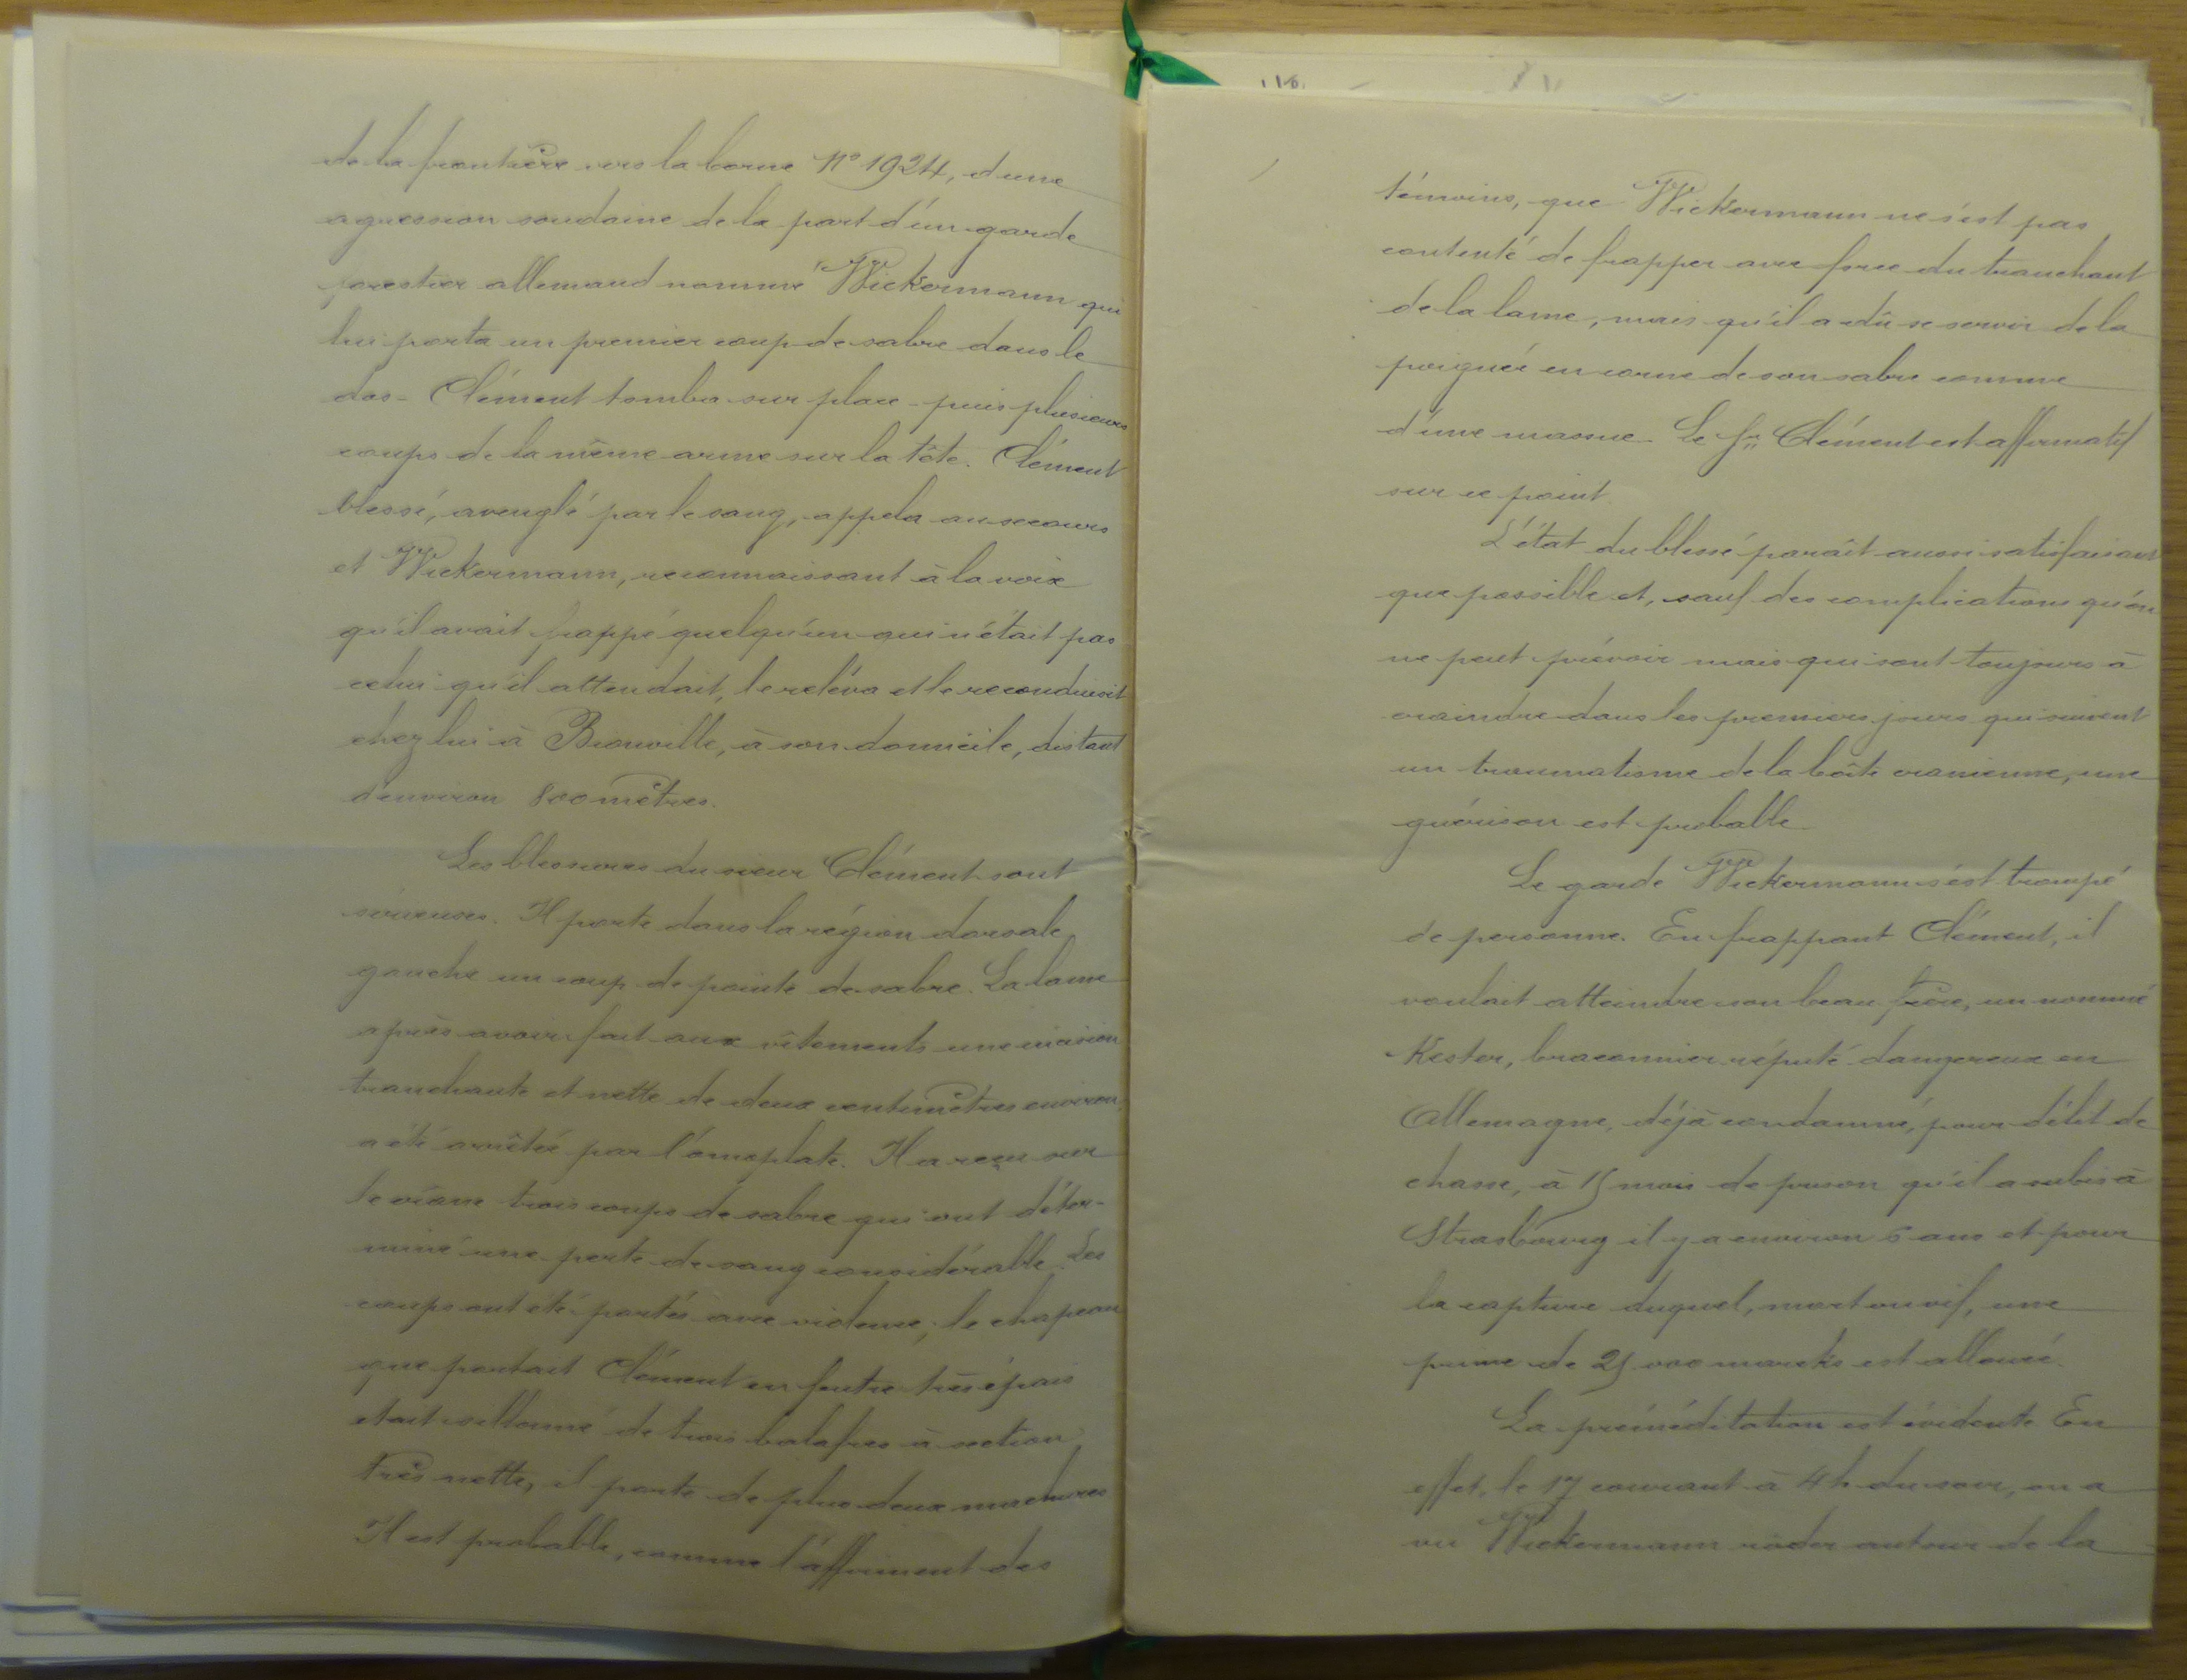 de la frontière vers la borne N° 1924, d'une
agression soudaine de la part d'un garde
forestier allemand nommé Wickermann qui
lui porta un premier coup de sabre dans le
dos - Clément tomba sur place - puis plusieurs
coups de la même arme sur la tête. Clément
blessé, aveuglé par le sang, appela au secours
et Wickermann, reconnaissant à la voix
qu'il avait frappé quelqu'un qui n'était pas
celui qu'il attendait, le releva et le reconduisit
chez lui à Bionville, à son domicile, distant
d'environ 800 mètres.
Les blessures du sieur Clément sont
sérieuses. Il porte dans la région dorsale
gauche un coup de pointe de sabre. La lame
après avoir fait aux vêtements une incision
tranchante et nette de deux centimètres environ,
a été arrêtée par l'omoplate. Il a reçu sur
le crâne trois coups de sabre qui ont déter-
miné une perte de sang considérable. Les
coups ont été portés avec violence; le chapeau
que portait Clément en feutre très épais
était sillonné de trois balafres à section
très nette, il porte de plus deux mâchures
Il est probable, comme l'affirment des
116.
témoins, que Wickermann ne s'est pas
contenté de frapper avec force du tranchant
de la lame, mais qu'il a dû se servir de la
poignée en corne de son sabre comme
d'une massue. Le Sr. Clément est affirmatif
sur ce point.
L'état du blessé paraît aussi satisfaisant
que possible et, sauf des complications qu'on
ne peut prévoir mais qui sont toujours à
craindre dans les premiers jours qui suivent
un traumatisme de la boîte cranienne, une
guérison est probable.
Le garde Wickermann s'est trompé
de personne. En frappant Clément, il
voulait atteindre son beau frère, un nommé
Kester, braconnier réputé dangereux en
Allemagne, déjà condamné, pour délit de
chasse, à 15 mois de prison qu'il a subis à
Strasbourg il y a environ 6 ans et pour
la capture duquel, mort ou vif, une
prime de 25 000 marcks est allouée.
La préméditation est évidente. En
effet, le 17 courant à 4 h. du soir, on a
vu Wickermann rôder autour de la